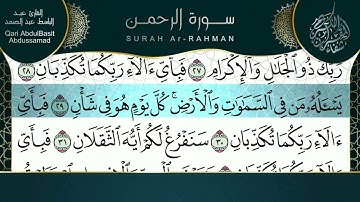 القارئ عبد
الباسط عبد الصمد
Qari AbdulBasit
Abdussamad
سورة الرحمن
SURAH Ar-RAHMAN
رَبِّكَ ذُو الْجَلَالِ وَالْإِكْرَامِ ٢٧ فَبِأَيِّ ءَالَاءِ رَبِّكُمَا تُكَذِّبَانِ ٢٨
يَسْـَٔلُهُۥ مَن فِي السَّمَاوَاتِ وَالْأَرْضِ ۚ كُلَّ يَوْمٍ هُوَ فِي شَأْنٍ ٢٩ فَبِأَيِّ
ءَالَاءِ رَبِّكُمَا تُكَذِّبَانِ ٣٠ سَنَفْرُغُ لَكُمْ أَيُّهَ الثَّقَلَانِ ٣١ فَبِأَيِّ